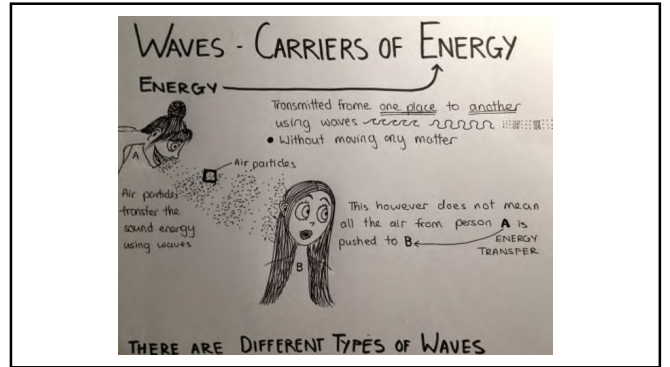 WAVES - CARRIERS OF ENERGY
ENERGY
Transmitted frome one place to another
using waves
• Without moving any matter
A
Air particles
Air particles
transfer the
sound energy
using waves
B
This however does not mean
all the air from person A is
pushed to B
ENERGY
TRANSFER
THERE ARE DIFFERENT TYPES OF WAVES